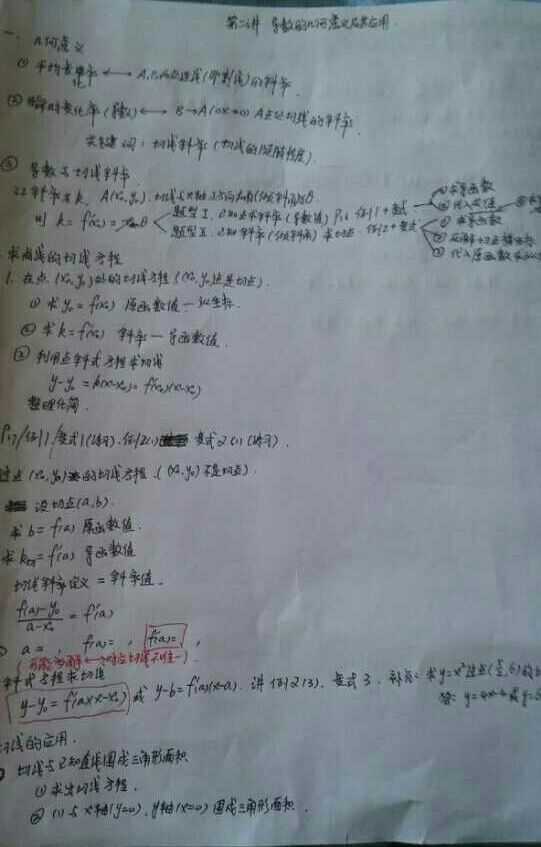 第二讲 导数的几何意义及其应用.
一. 几何意义
① 平均变化率 ⟷ A,B两点连线(即割线)的斜率.
② 瞬时变化率(导数) ⟷ B→A(△x→0) A点处切线的斜率.
关键词: 切线斜率
③ 导数与切线斜率
则 k=f'(x₀)=tanθ
题型I. 已知点求斜率(导数值) 例1+变式
题型II. 已知斜率(倾斜角)求切点. 例2+变式
① 求导函数
② 代入点值
① 求导函数
求曲线的切线方程
1. 在点(x₀,y₀)处的切线方程.((x₀,y₀)是切点).
① 求y₀=f(x₀) 原函数值—纵坐标.
② 求k=f'(x₀) 斜率—导函数值.
③ 利用点斜式方程求切线
y-y₀=k(x-x₀)=f'(x₀)(x-x₀)
整理化简.
例1. 变式1(练习). 例2(1) 变式2(1)(练习).
过点(x₀,y₀)的切线方程.((x₀,y₀)不是切点).
设切点(a,b).
求b=f(a) 原函数值.
求k切=f'(a) 导函数值
切线斜率定义=斜率值.
f(a)-y₀/a-x₀=f'(a)
a= , f(a)= , f'(a)= ,
(可能多解⟷对应切线不唯一)
斜式方程求切线
y-y₀=f'(a)(x-x₀) 或 y-b=f'(a)(x-a). 讲例2(3). 变式3. 补充: 求y=x²过点(5/2,6)的
答: y=4x-4或y=
切线的应用.
切线与已知直线围成三角形面积
① 求出切线方程.
② (1)与x轴(y=0), y轴(x=0)围成三角形面积.